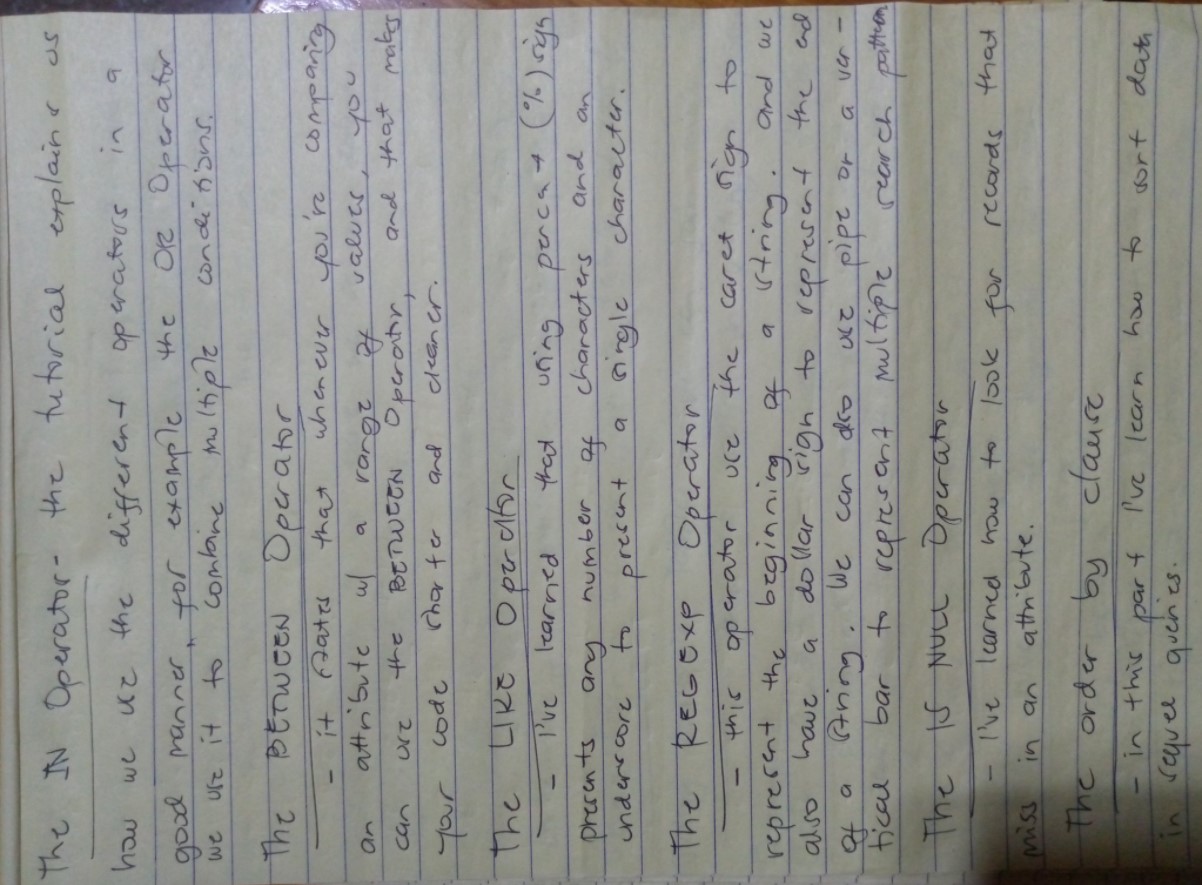 The IN Operator - the tutorial explains us
how we use the different operators in a
good manner, for example the OR Operator
we use it to combine multiple conditions.
The BETWEEN Operator
- it states that whenever you're comparing
an attribute w/ a range of values, you
can use the BETWEEN Operator, and that makes
your code shorter and cleaner.
The LIKE Operator
- I've learned that using percent (%) sign
presents any number of characters and an
underscore to present a single character.
The REGEXP Operator
- this operator use the caret sign to
represent the beginning of a string. and we
also have a dollar sign to represent the end
of a string. We can also use pipe or a ver-
tical bar to represent multiple search pattern
The IS NULL Operator
- I've learned how to look for records that
miss in an attribute.
The order by clause
- in this part I've learn how to sort data
in sequel queries.